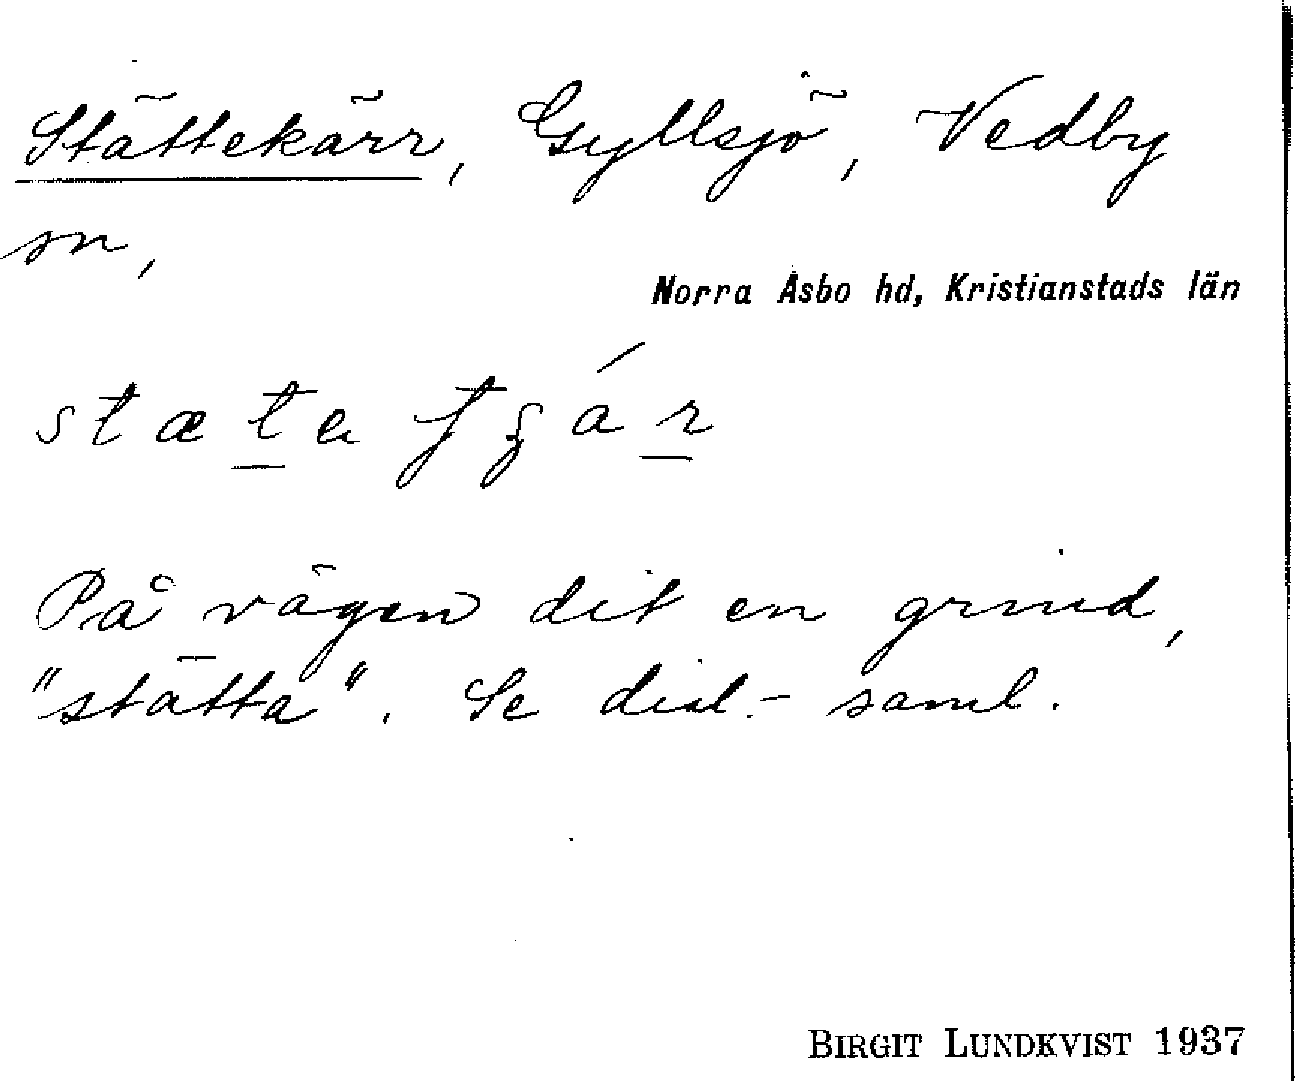 Stättekärr, Gyllsjö, Vedby
sn,
Norra Åsbo hd, Kristianstads län
På vägen dit en grind,
"stätta". Se dial.-saml.
BIRGIT LUNDKVIST 1937